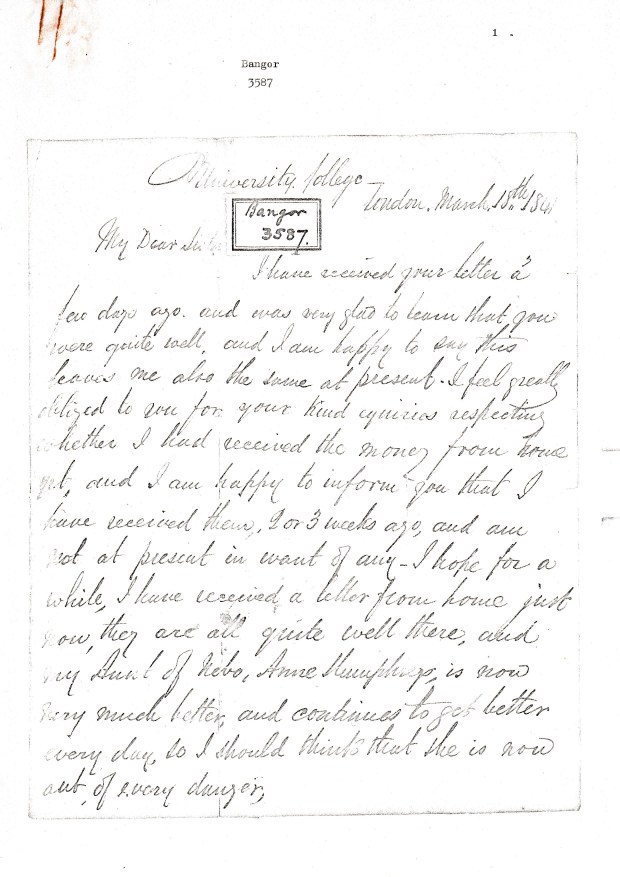 1 .
Bangor
3587
University College
London. March. 18.th 184
Bangor
3587.
My Dear Sister
I have received your letter a
few days ago. and was very glad to learn that you
were quite well, and I am happy to say this
leaves me also the same at present. I feel greatly
obliged to you for your kind equiries respecting
whether I had received the money from home
yet, and I am happy to inform you that I
have received them, 2 or 3 weeks ago, and am
not at present in want of any - I hope for a
while, I have received a letter from home just
now, they are all quite well there, and
my Aunt of Nebo, Anne Humphreys, is now
very much better, and continues to get better
every day, so I should think that she is now
out, of every danger,